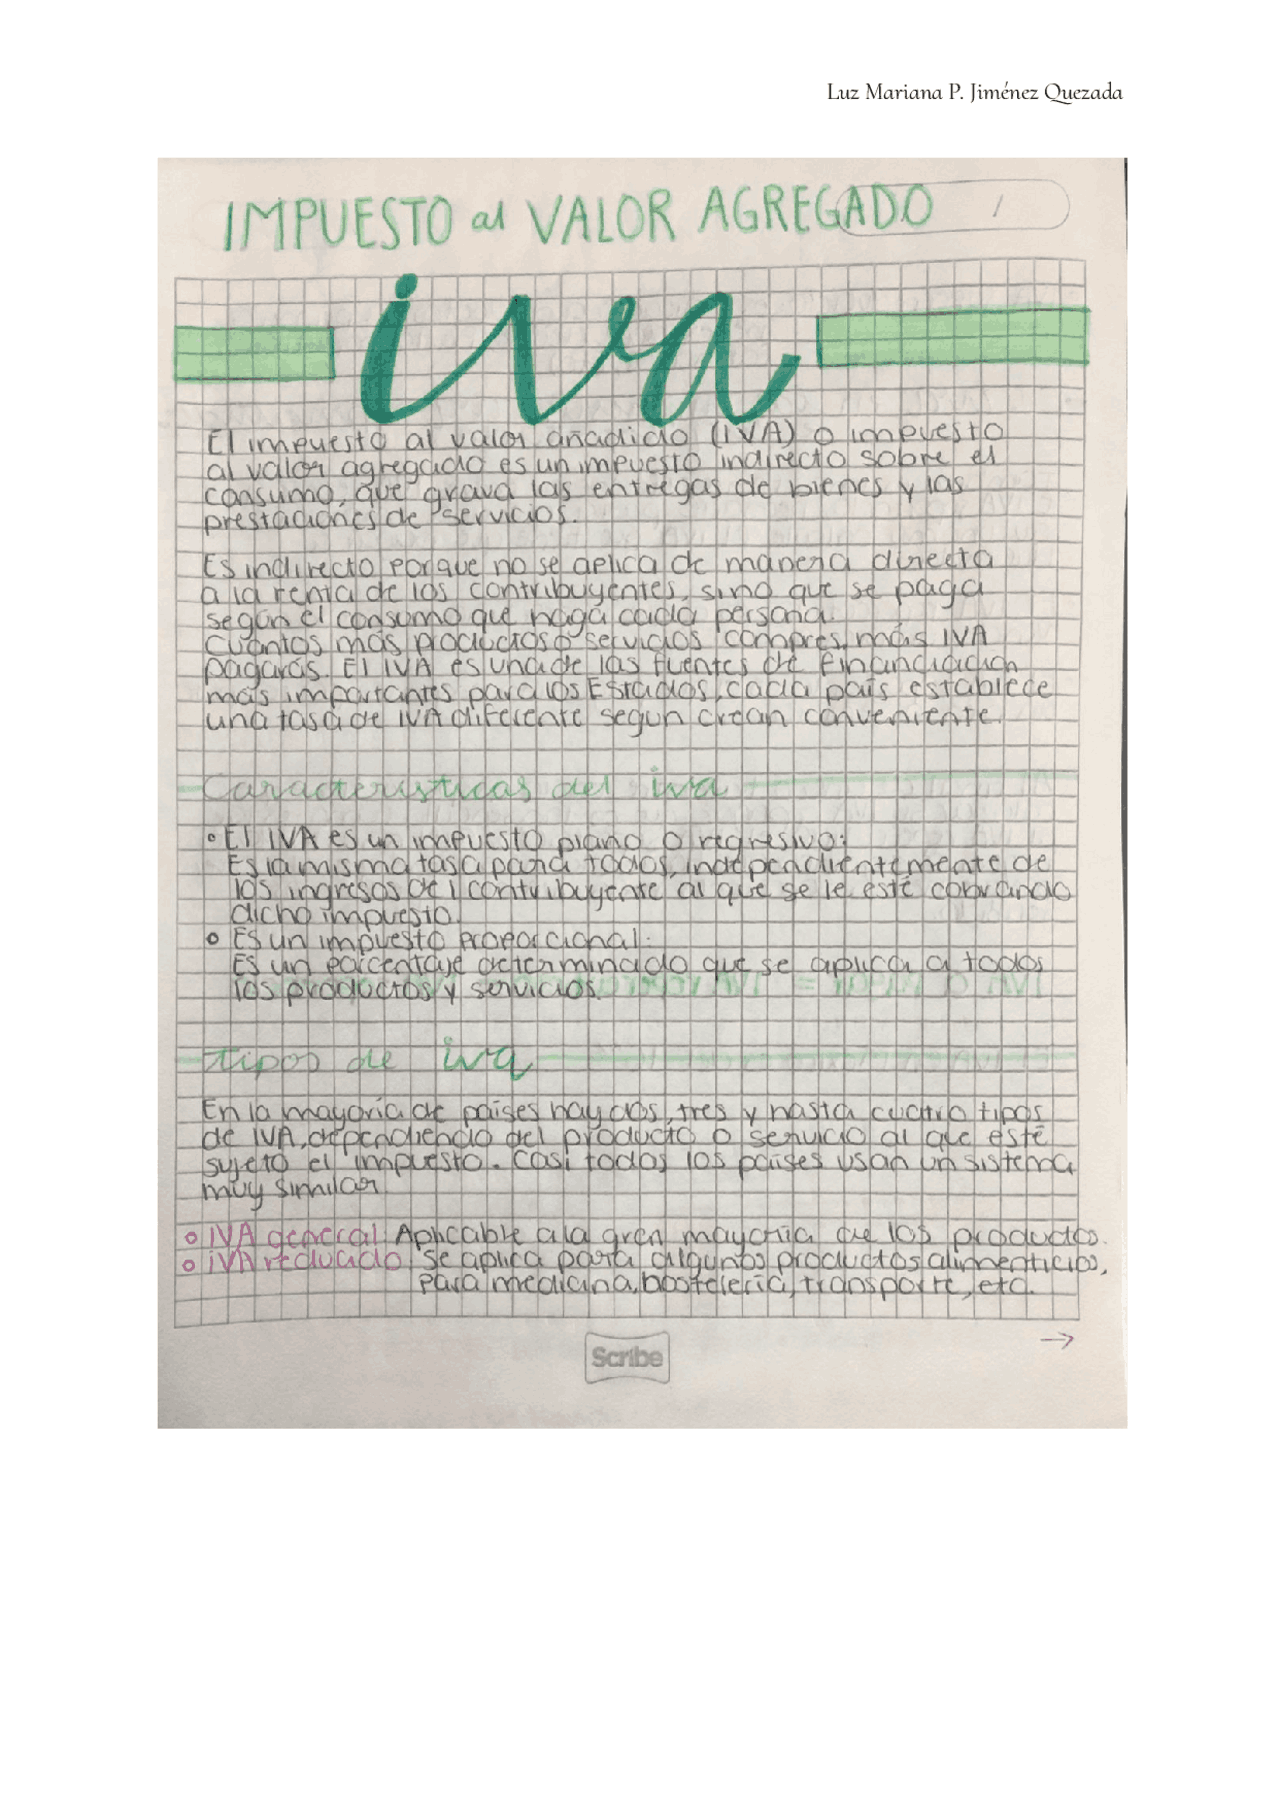 Luz Mariana P. Jiménez Quezada
IMPUESTO al VALOR AGREGADO 1
iva
El impuesto al valor añadido (IVA) o impuesto
al valor agregado es un impuesto indirecto sobre el
consumo, que grava las entregas de bienes y las
prestaciones de servicios.
Es indirecto porque no se aplica de manera directa
a la renta de los contribuyentes, sino que se paga
según el consumo que haga cada persona.
Cuantos más productos o servicios compres, más IVA
pagarás. El IVA es una de las fuentes de financiación
más importantes para los Estados, cada país establece
una tasa de IVA diferente segun crean conveniente.
Características del iva
El IVA es un impuesto plano o regresivo:
Es la misma tasa para todos, independientemente de
los ingresos del contribuyente al que se le esté cobrando
dicho impuesto.
Es un impuesto proporcional:
Es un porcentaje determinado que se aplica a todos
los productos y servicios.
tipos de iva
En la mayoría de países hay dos, tres y hasta cuatro tipos
de IVA, dependiendo del producto o servicio al que esté
sujeto el impuesto. Casi todos los países usan un sistema
muy similar.
IVA general: Aplicable a la gran mayoría de los productos.
IVA reducido: Se aplica para algunos productos alimenticios,
para medicina, hostelería, transporte, etc.
→
Scribe